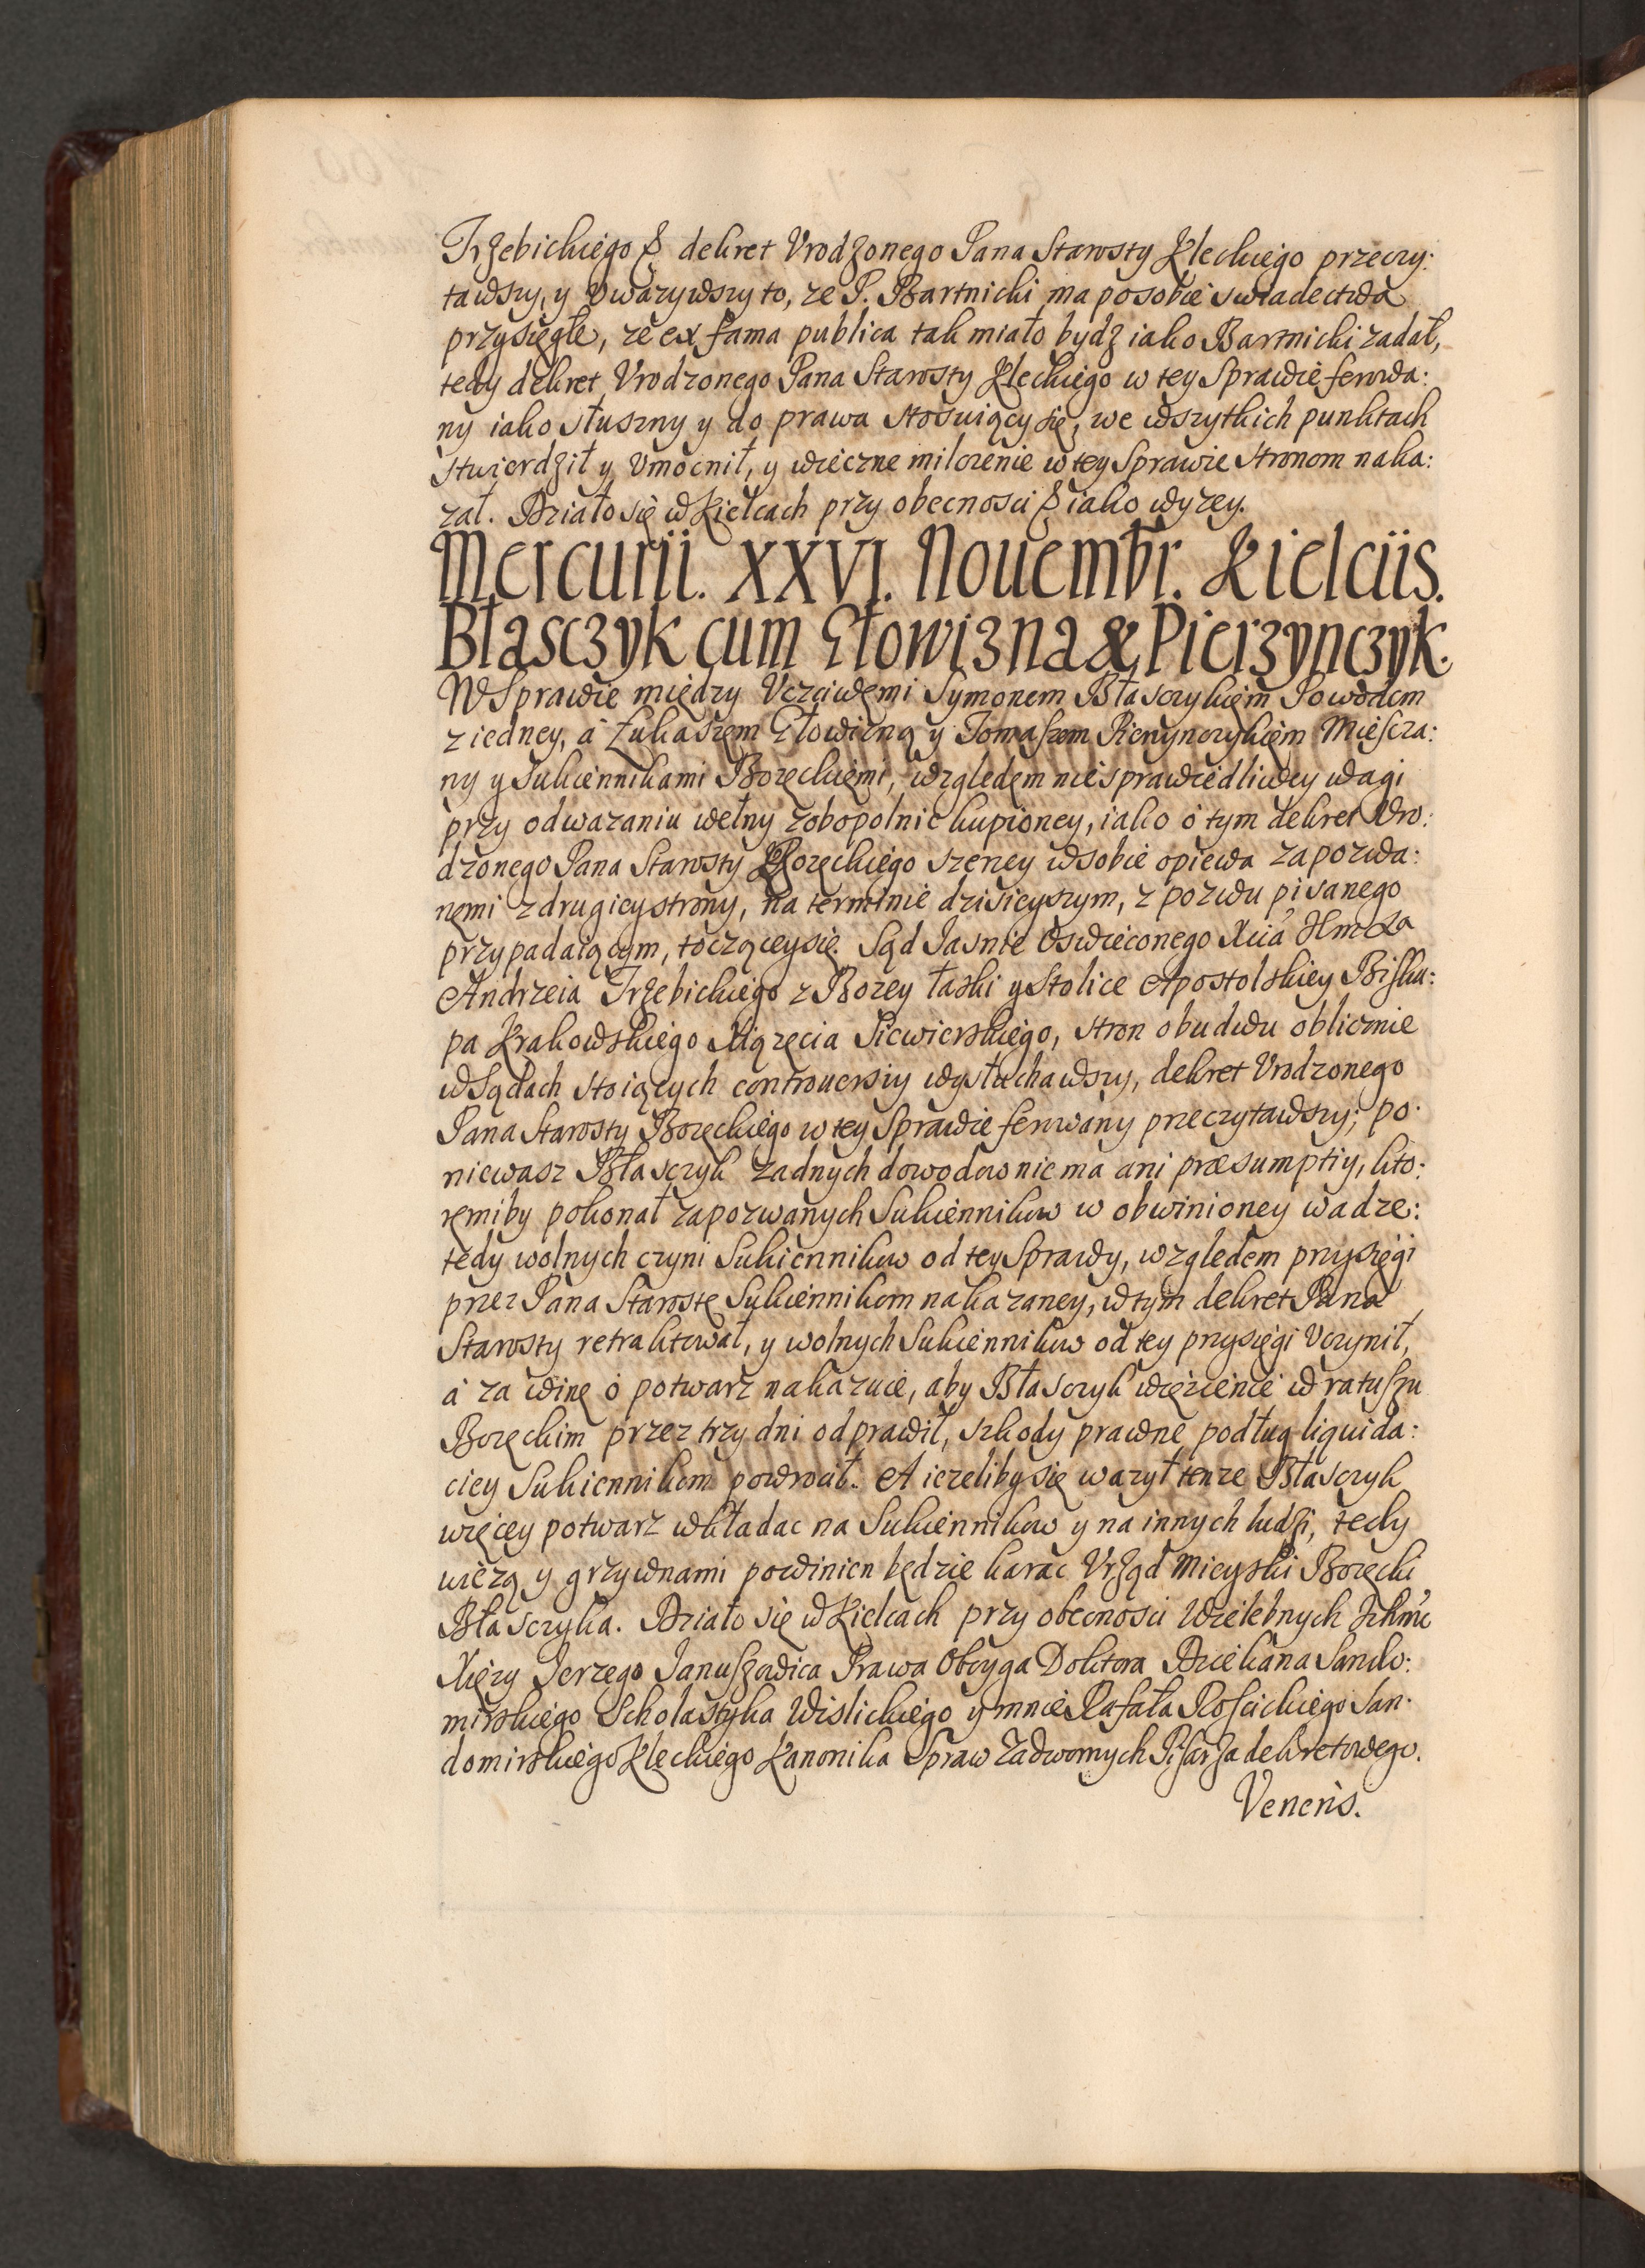 Trzebickiego & dekret Vrodzonego Pana Starosty Kleckiego przeczy:
tawszy, y Vwazywszy to, ze P. Bartnicki ma po sobie swiadectwa
przysięgłe, ze ex fama publica tak miało bydz iako Bartnicki zadał,
tedy dekret Vrodzonego Pana Starosty Kleckiego w tey Sprawie ferowa:
ny iako słuszny y do prawa stosuiący się, we wszytkich punktach
stwierdził y Vmocnił, y wieczne milczenie w tey Sprawie stronom naka:
zał. Działo się w Kielcach przy obecnosci & iako wyzey.
Mercurii. XXVI. Nouembr. Kielciis.
Błasczyk cum Głowizna & Pierzynczyk.
W Sprawie między Vczciwemi Symonem Błasczykiem Powodem
z iedney, á Łukaszem Głowizną y Tomaszem Pierzynczykiem Miescza:
ny y Sukiennikami Bozęckiemi, względem niesprawiedliwey wagi
przy odwazaniu wełny zobopolnie kupioney, iako ó tym dekret Vro:
dzonego Pana Starosty Bozęckiego szerzey w sobie opiewa zapozwa:
nemi z drugiey strony, na terminie dzisieyszym, z pozwu pisanego
przypadaiącym, toczącey się. Sąd Jasnie Oswieconego Xcia Jmci Xa
Andrzeia Trzebickiego z Bozey łaski y Stolice Apostolskiey Bisku:
pa Krakowskiego Xiązęcia Siewierskiego, stron obudwu oblicznie
w Sądach stoiących controuersiy wysłuchawszy, dekret Vrodzonego
Pana Starosty Bozęckiego w tey Sprawie ferowany przeczytawszy; po:
niewasz Błasczyk zadnych dowodow nie ma ani præsumptiy, kto:
remiby pokonał zapozwanych Sukiennikow w obwinioney wadze:
tedy wolnych czyni Sukiennikow od tey Sprawy, względem przysięgi
przez Pana Starostę Sukiennikom nakazaney, w tym dekret Pana
Starosty retraktował, y wolnych Sukiennikow od tey przysięgi Vczynił,
á za winę ó potwarz nakazuie, aby Błasczyk więzienie w ratuszu
Bozęckim przez trzy dni odprawił, szkody prawne podług liquida:
ciey Sukiennikom powrocił. A iezeliby się wazył tenze Błasczyk
więcey potwarz wkładac na Sukiennikow y na innych ludzi, tedy
wiezą y grzywnami powinien będzie karac Vrząd Mieyski Bozęcki
Błasczyka. Działo się w Kielcach przy obecnosci Wielebnych
Xięzy Jerzego Januszowica Prawa Oboyga Doktora Dziekana Sando:
mirskiego Scholastyka Wislickiego y mnie Rafała Roscickiego San:
domirskiego Kleckiego Kanonika Spraw Zadwornych Pisarza dekretowego.
Veneris.